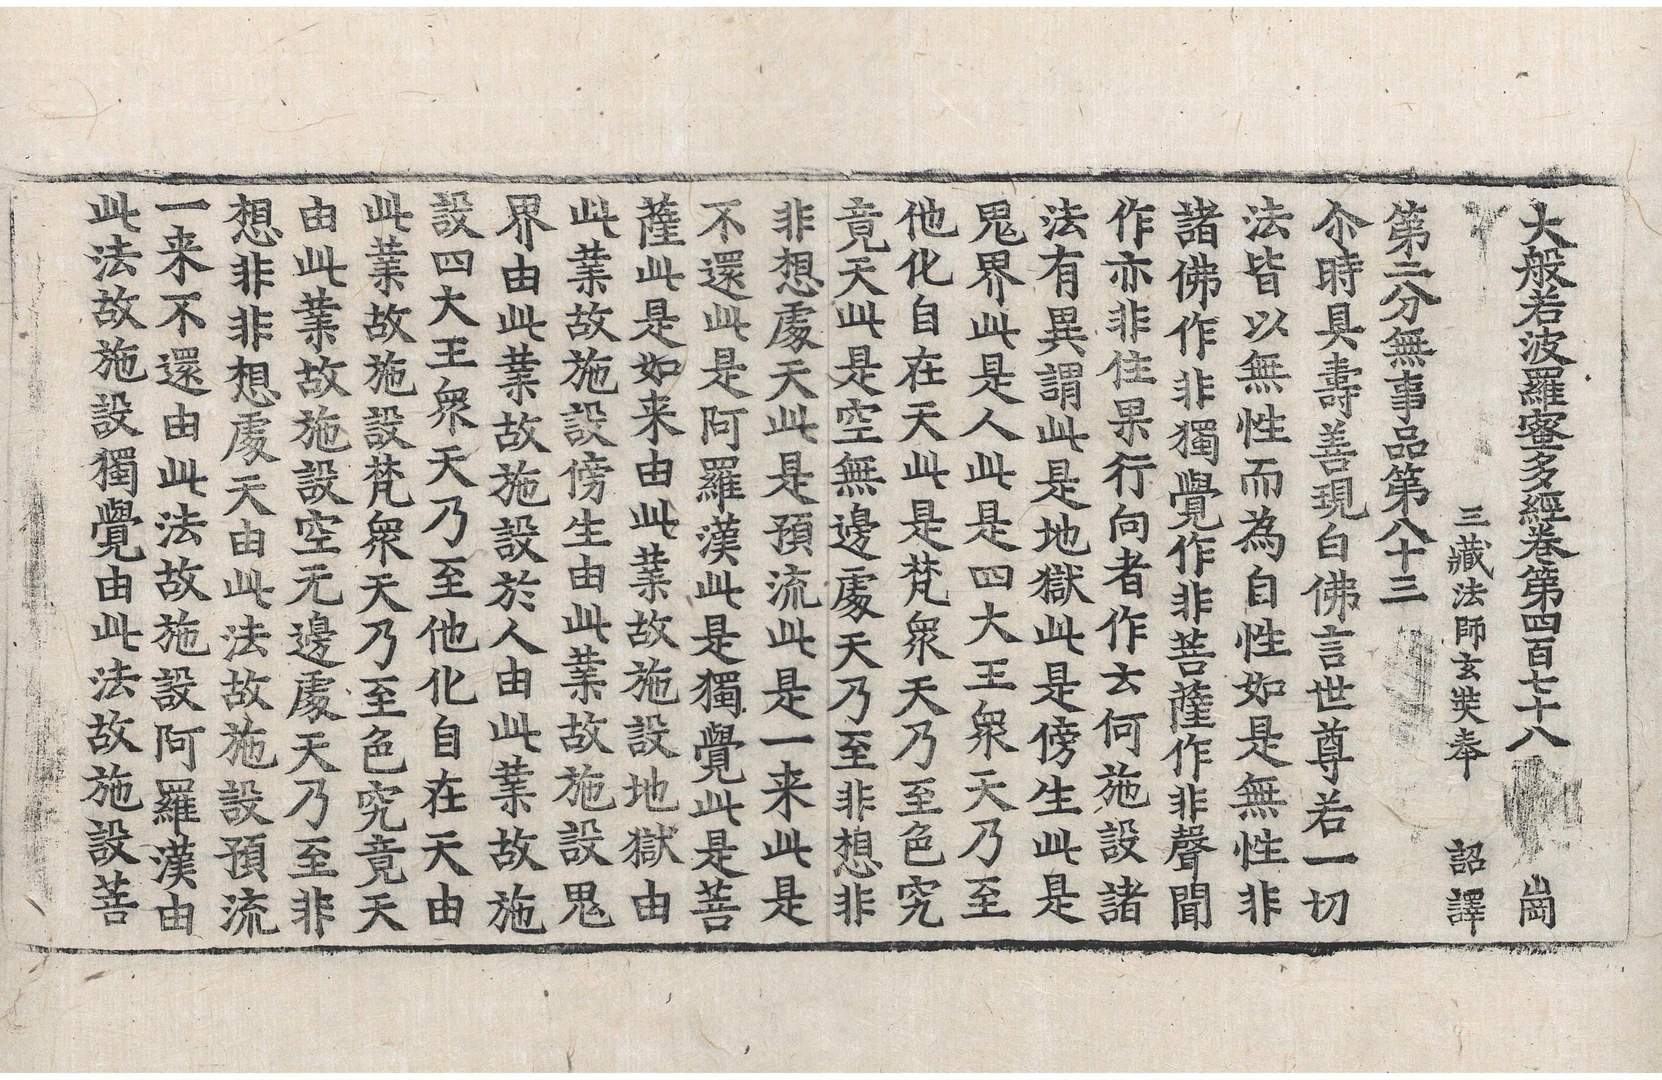 大般若波羅蜜多經卷第四百七十八 崗
三藏法師玄奘奉 詔譯
第二分無事品第八十三
尒時具壽善現白佛言世尊若一切
法皆以無性而為自性如是無性非
諸佛作非獨覺作非菩薩作非聲聞
作亦非住果行向者作云何施設諸
法有異謂此是地獄此是傍生此是
鬼界此是人此是四大王衆天乃至
他化自在天此是梵衆天乃至色究
竟天此是空無邊處天乃至非想非
非想處天此是預流此是一来此是
不還此是阿羅漢此是獨覺此是菩
薩此是如来由此業故施設地獄由
此業故施設傍生由此業故施設鬼
界由此業故施設於人由此業故施
設四大王衆天乃至他化自在天由
此業故施設梵衆天乃至色究竟天
由此業故施設空无邊處天乃至非
想非非想處天由此法故施設預流
一来不還由此法故施設阿羅漢由
此法故施設獨覺由此法故施設菩